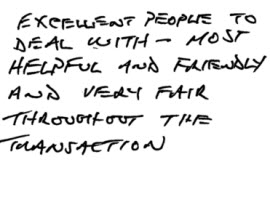 EXCELLENT PEOPLE TO
DEAL WITH - MOST
HELPFUL AND FRIENDLY
AND VERY FAIR
THROUGHOUT THE
TRANSACTION